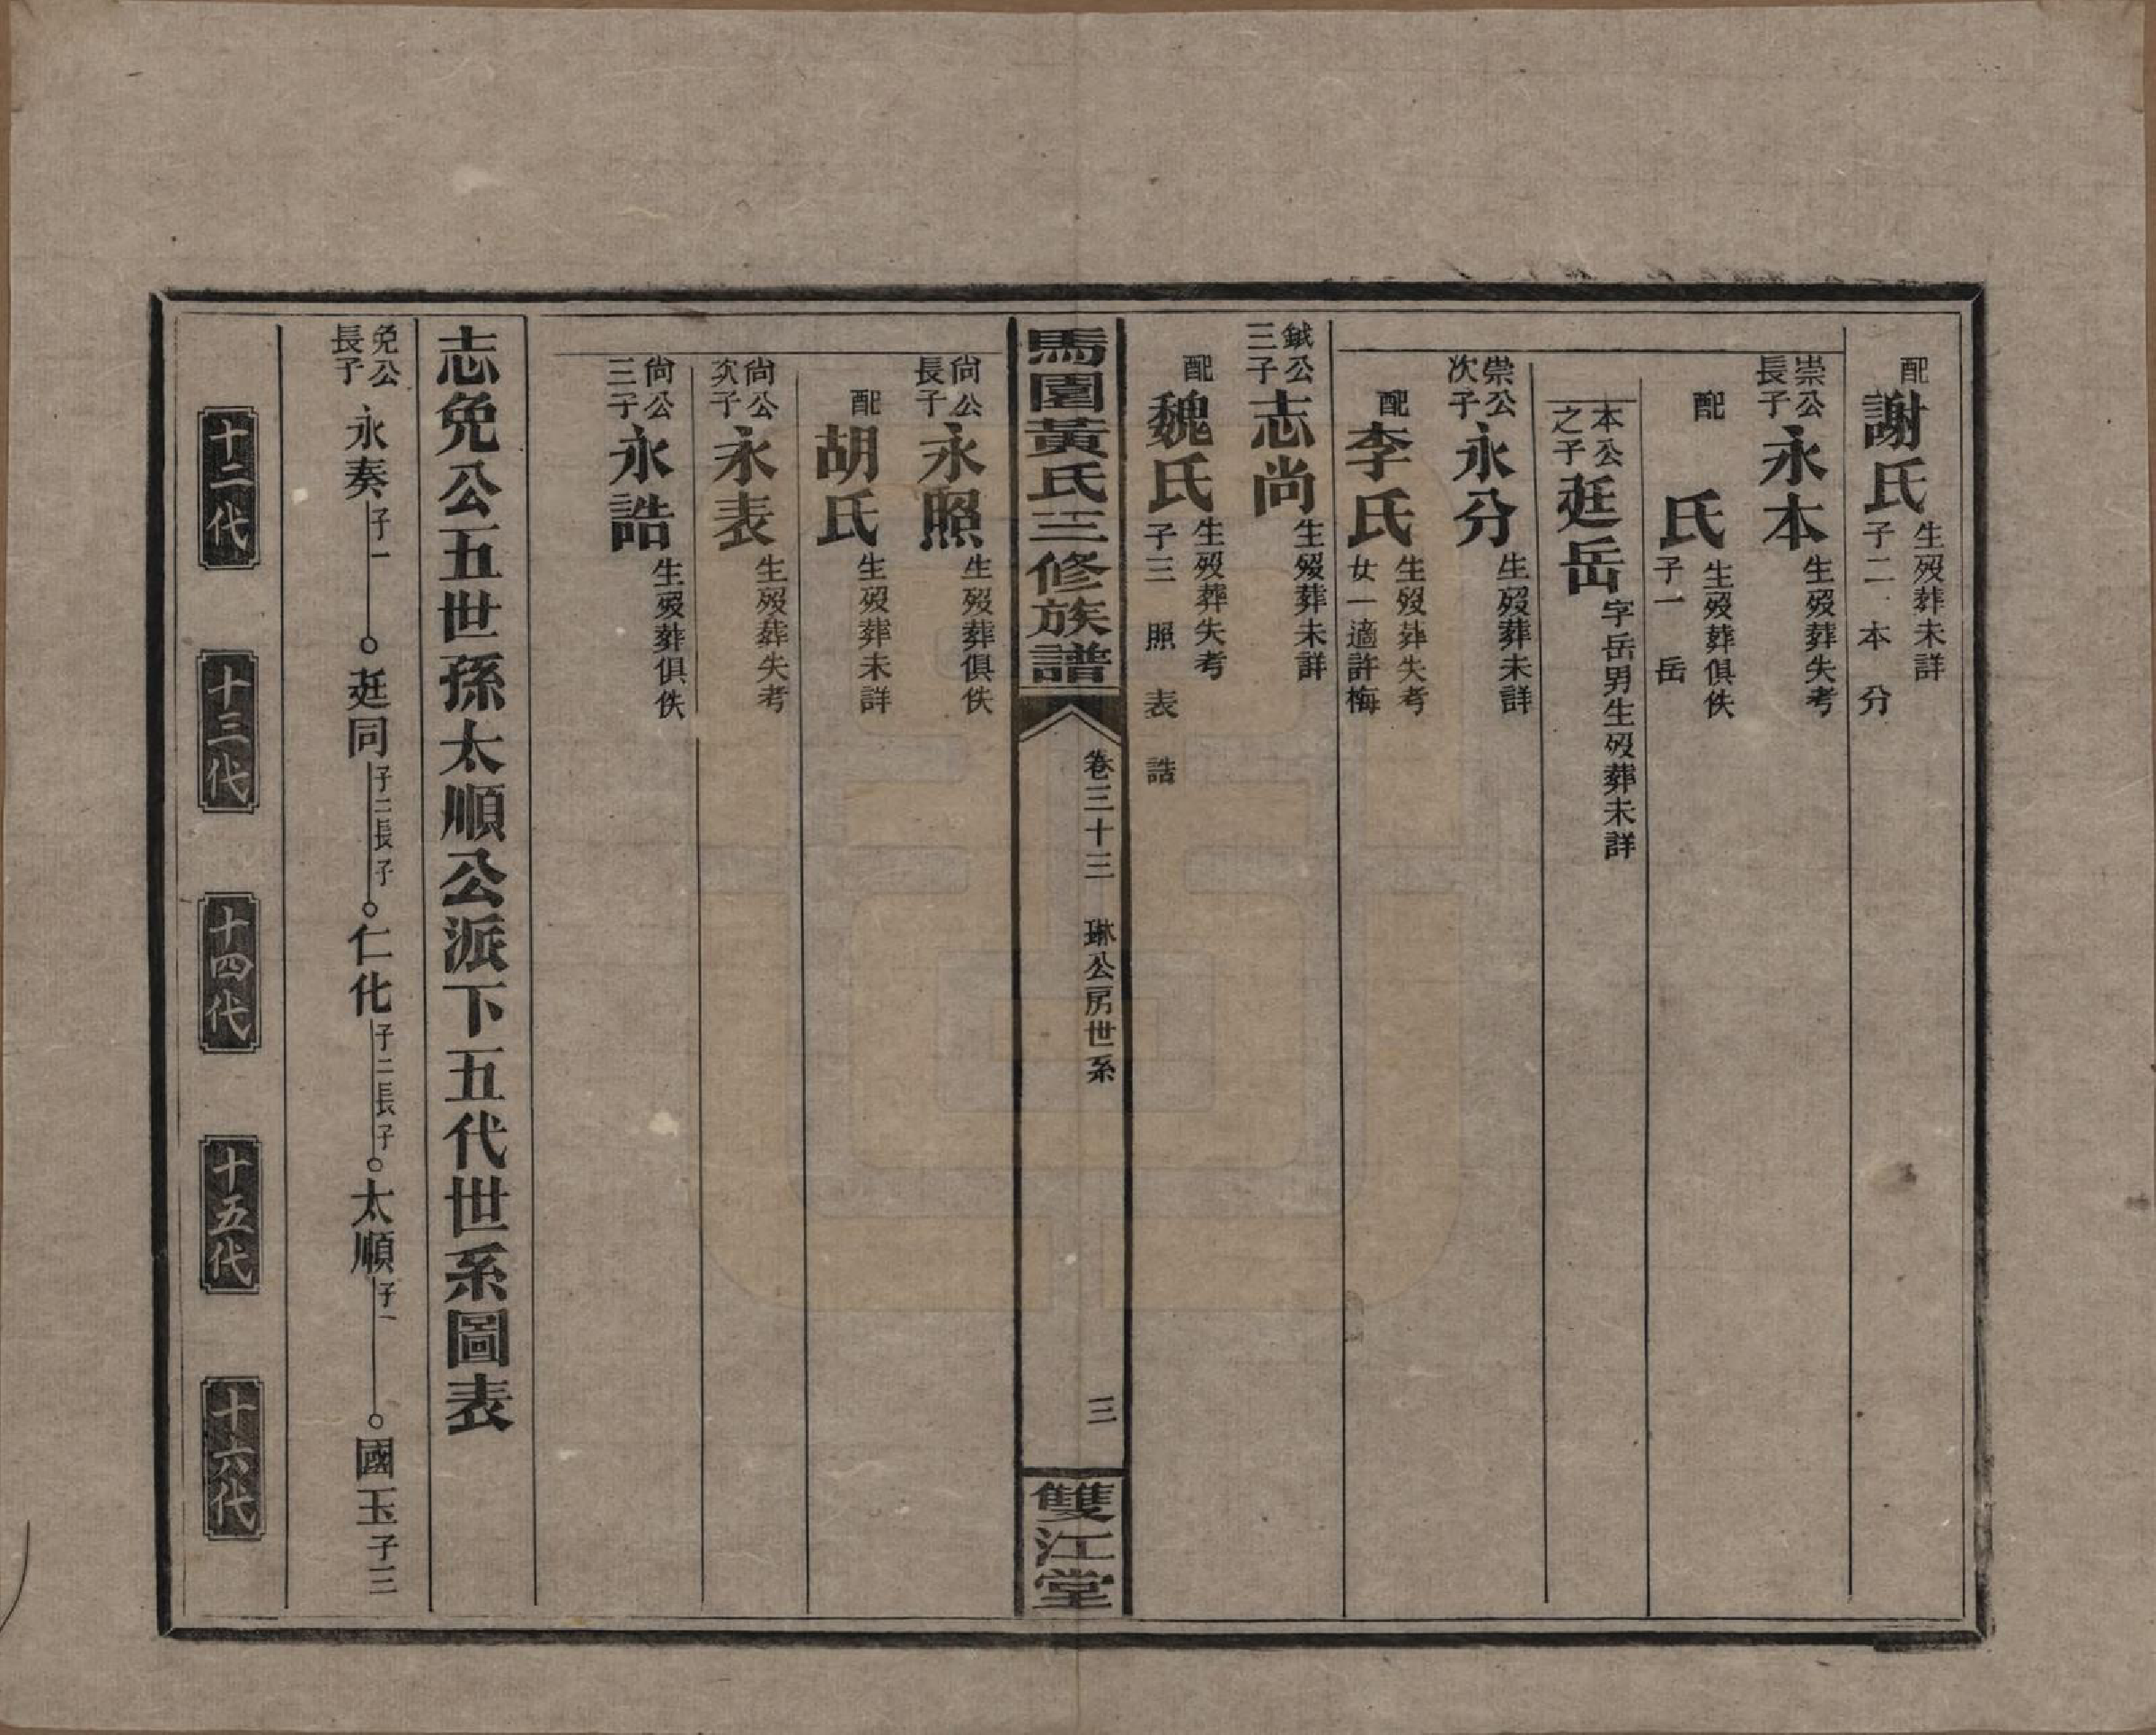 配謝氏生歿葬未詳子二 本 分
崇公長子永本生歿葬失考
配 氏生歿葬俱佚子一 岳
本公之子廷岳字岳男生歿葬未詳
崇公次子永分生歿葬未詳
配李氏生歿葬失考女一適許梅
鉞公三子志尚生歿葬未詳
配魏氏生歿葬失考子三 照 表 誥
馬園黃氏三修族譜 卷三十三 琳公房世系 三 雙江堂
尙公長子永照生歿葬俱佚
配胡氏生歿葬未詳
尙公次子永表生歿葬失考
尙公三子永誥生歿葬俱佚
志免公五世孫太順公派下五代世系圖表
免公長子永奏子一 廷同子二長子 仁化子二長子 太順子一 國玉子三
十二代 十三代 十四代 十五代 十六代